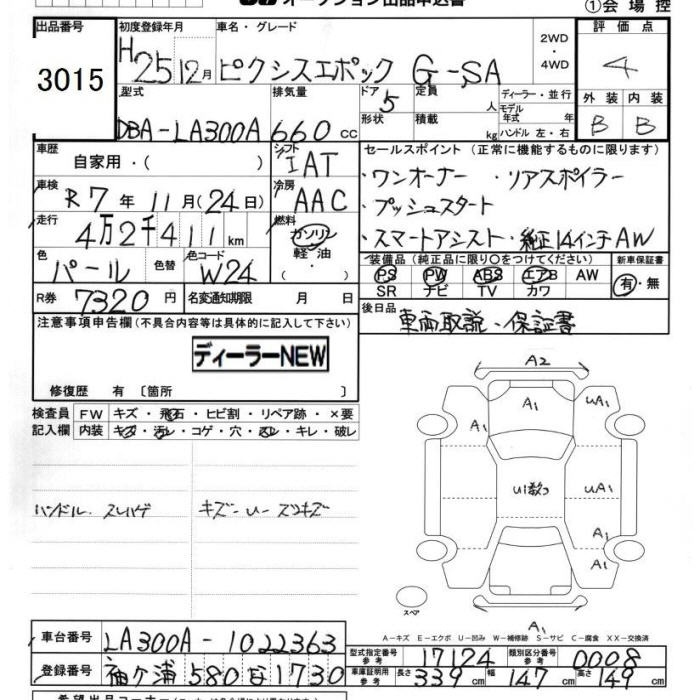 オークション出品申込書
①会場控
出品番号 初度登録年月 車名・グレード 2WD・4WD 評価点
3015 H25 12月 ピクシスエポック G-SA 4
型式 排気量 ドア 定員 人 ディーラー・並行 外装 内装
DBA-LA300A 660cc 5 形状 積載 kg モデル年式 年式 ハンドル 左・右 B B
車歴 自家用・( ) シフト IAT
セールスポイント (正常に機能するものに限ります)
車検 R7年 11月(24日) 冷房 AAC
・ワンオーナー ・リアスポイラー
・プッシュスタート
走行 4万2千411km 燃料 ガソリン 軽油・
・スマートアシスト・純正14インチAW
色 パール 色替 色コード W24
装備品 (純正品に限り○をつけてください) 新車保証書
PS PW ABS エアB AW 有・無
SR ナビ TV カワ
R券 7320円 名変通知期限 月 日
後日品 車両取説・保証書
注意事項申告欄(不具合内容等は具体的に記入して下さい)
ディーラーNEW
修復歴 有 〔箇所 〕
検査員 FW キズ・飛石・ヒビ割・リペア跡・×要
記入欄 内装 キズ・汚レ・コゲ・穴・スレ・キレ・破レ
ハンドル.スレハゲ
キズ-U-スリキズ
A2
A1 UA1
A1
U1数つ UA1
A1
A1
スペア
A1
A-キズ E-エクボ U-凹み W-補修跡 S-サビ C-腐食 XX-交換済
車台番号 LA300A-1022363
型式指定番号 参考 17124 類別区分番号 参考 0008
登録番号 袖ケ浦 580 な 1730
車庫証明用 参考 長さ 339cm 幅 147cm 高さ 149cm